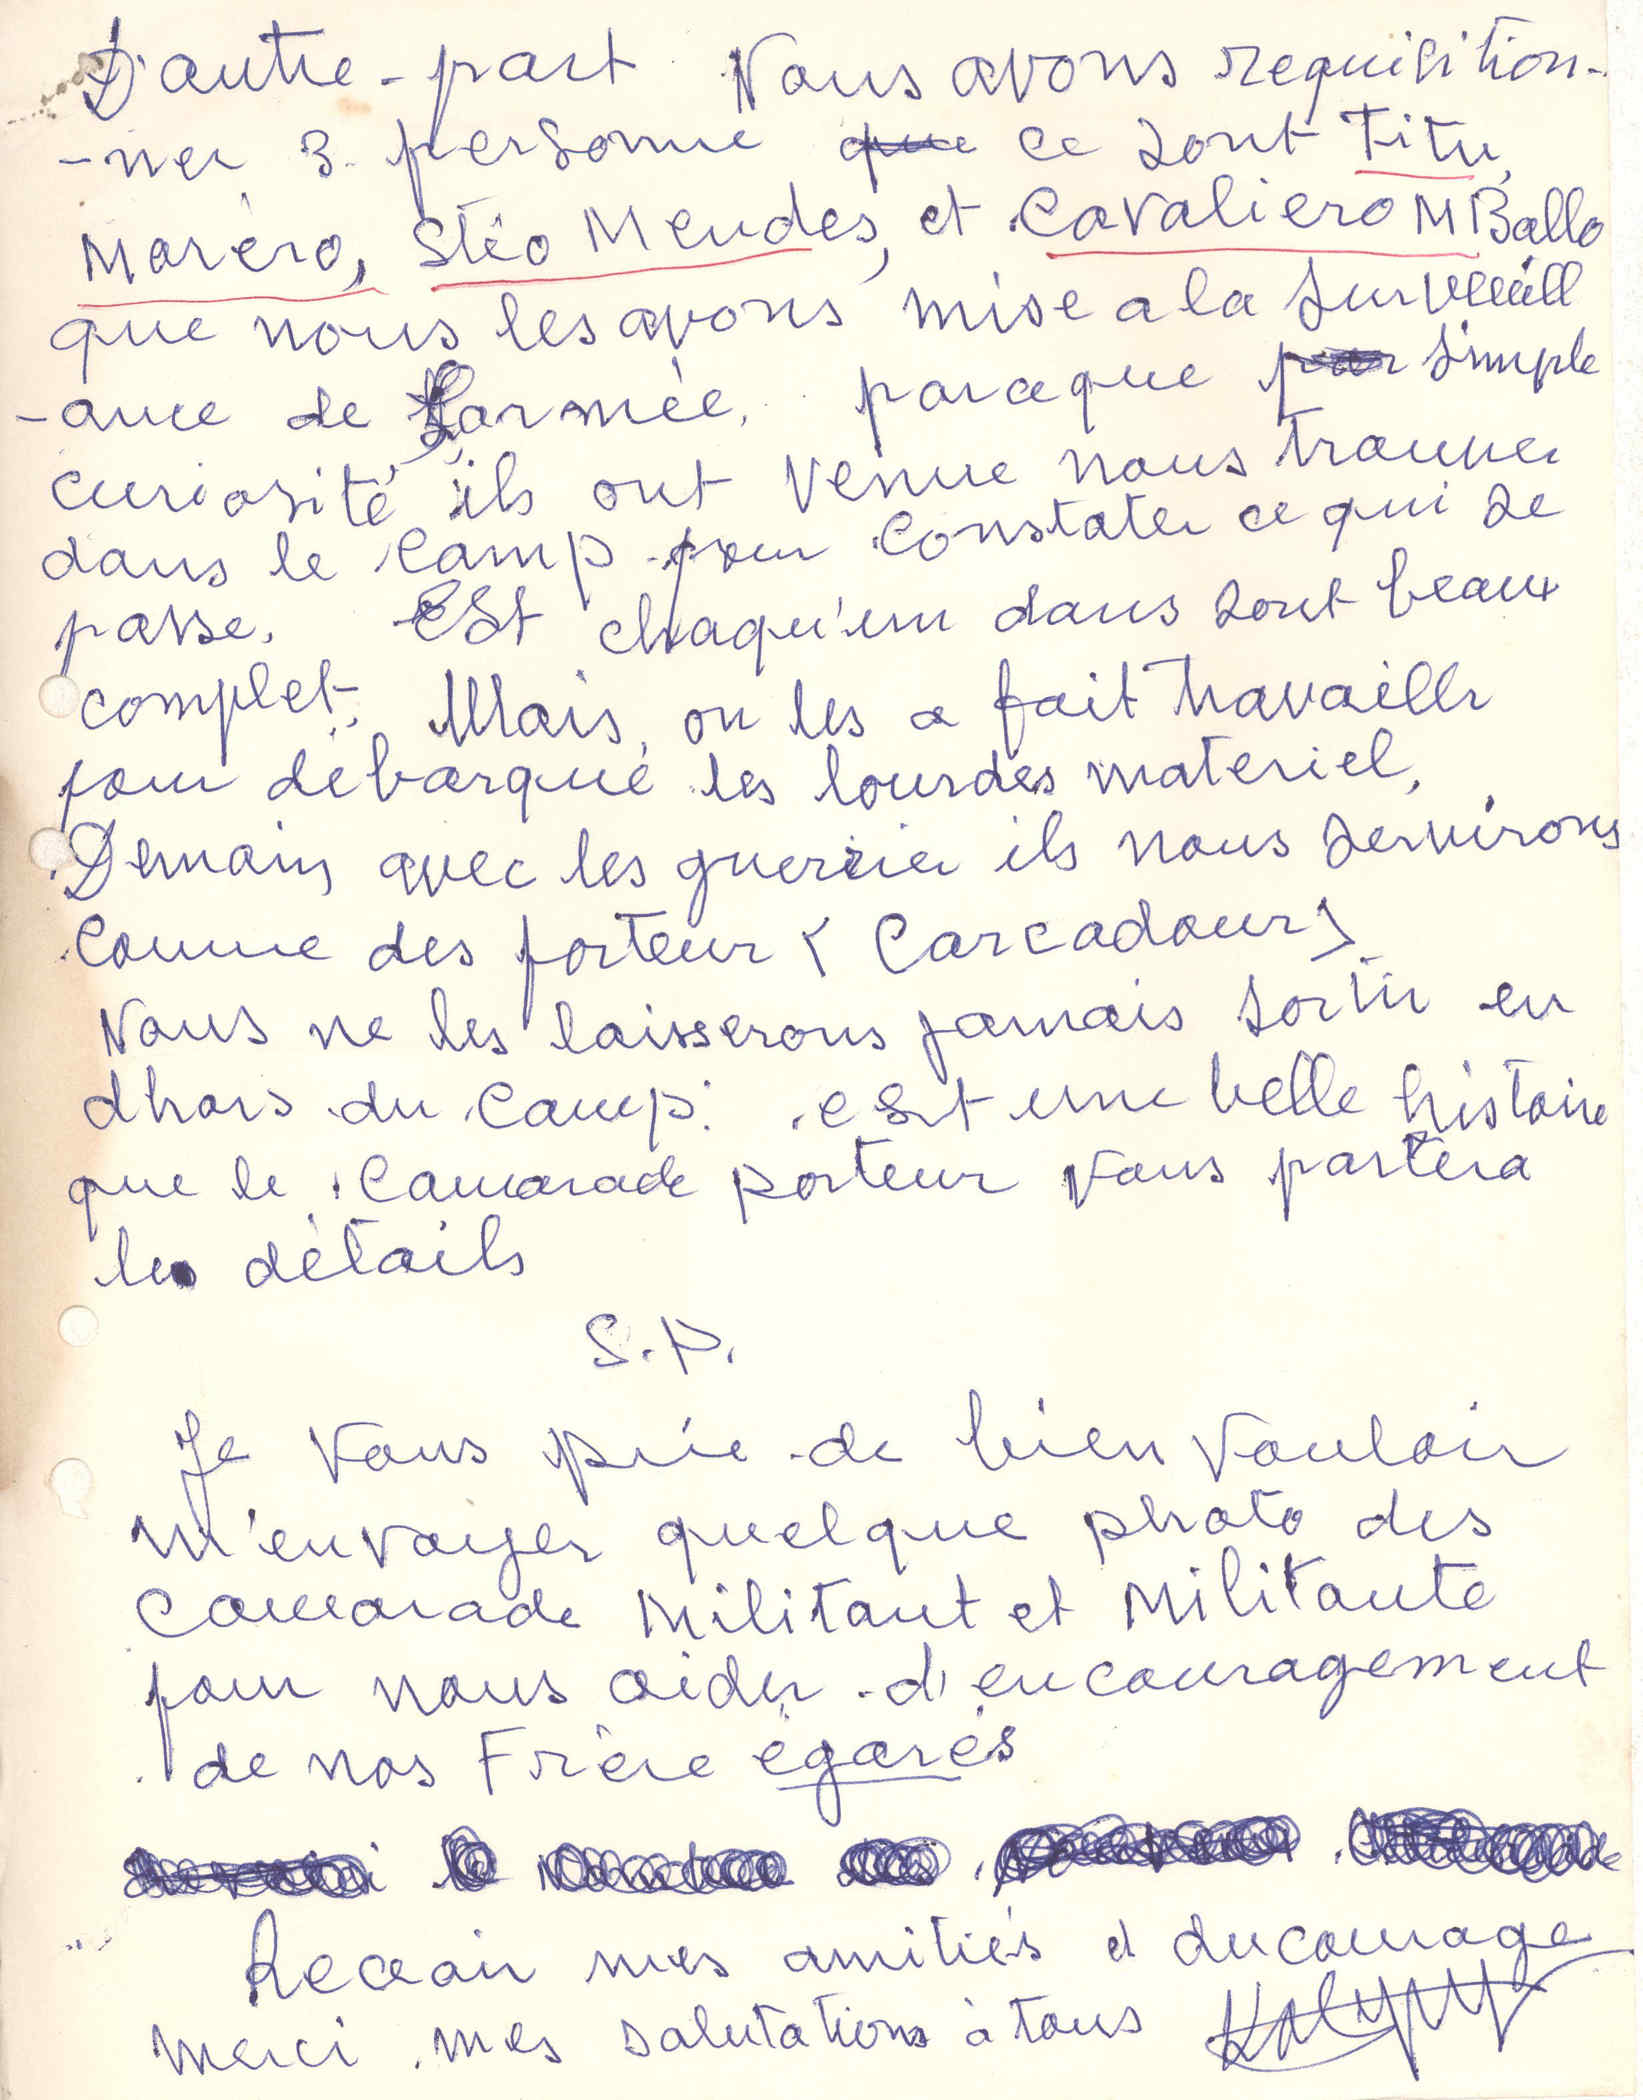 D'autre-part Nous avons requisition-
-ner 3 personne que ce sont Titu
Maréro, Stéo Mendes, et Cavaliero MBallo
que nous les avons mise a la surveill
-ance de l'armée, parceque pour simple
curiosité ils ont venue nous trouver
dans le camp pour constater ce qui se
passe. Est chaqu'un dans sont beaux
complet, Mais, on les a fait travailler
pour débarqué les lourdes materiel,
Demain avec les guerrier ils nous servirons
comme des porteur ( Carcadour)
Nous ne les laisserons jamais sortir en
dhors du camp. est une belle histoire
que le Camarade porteur vous partera
les détails
S.P.
Je vous prie de bien vouloir
m'envoyer quelque photo des
Camarade Militant et Militante
pour nous aider d'encouragement
de nos Frère égarés
Recevoir mes amitiés et du courage
merci mes salutations à tous